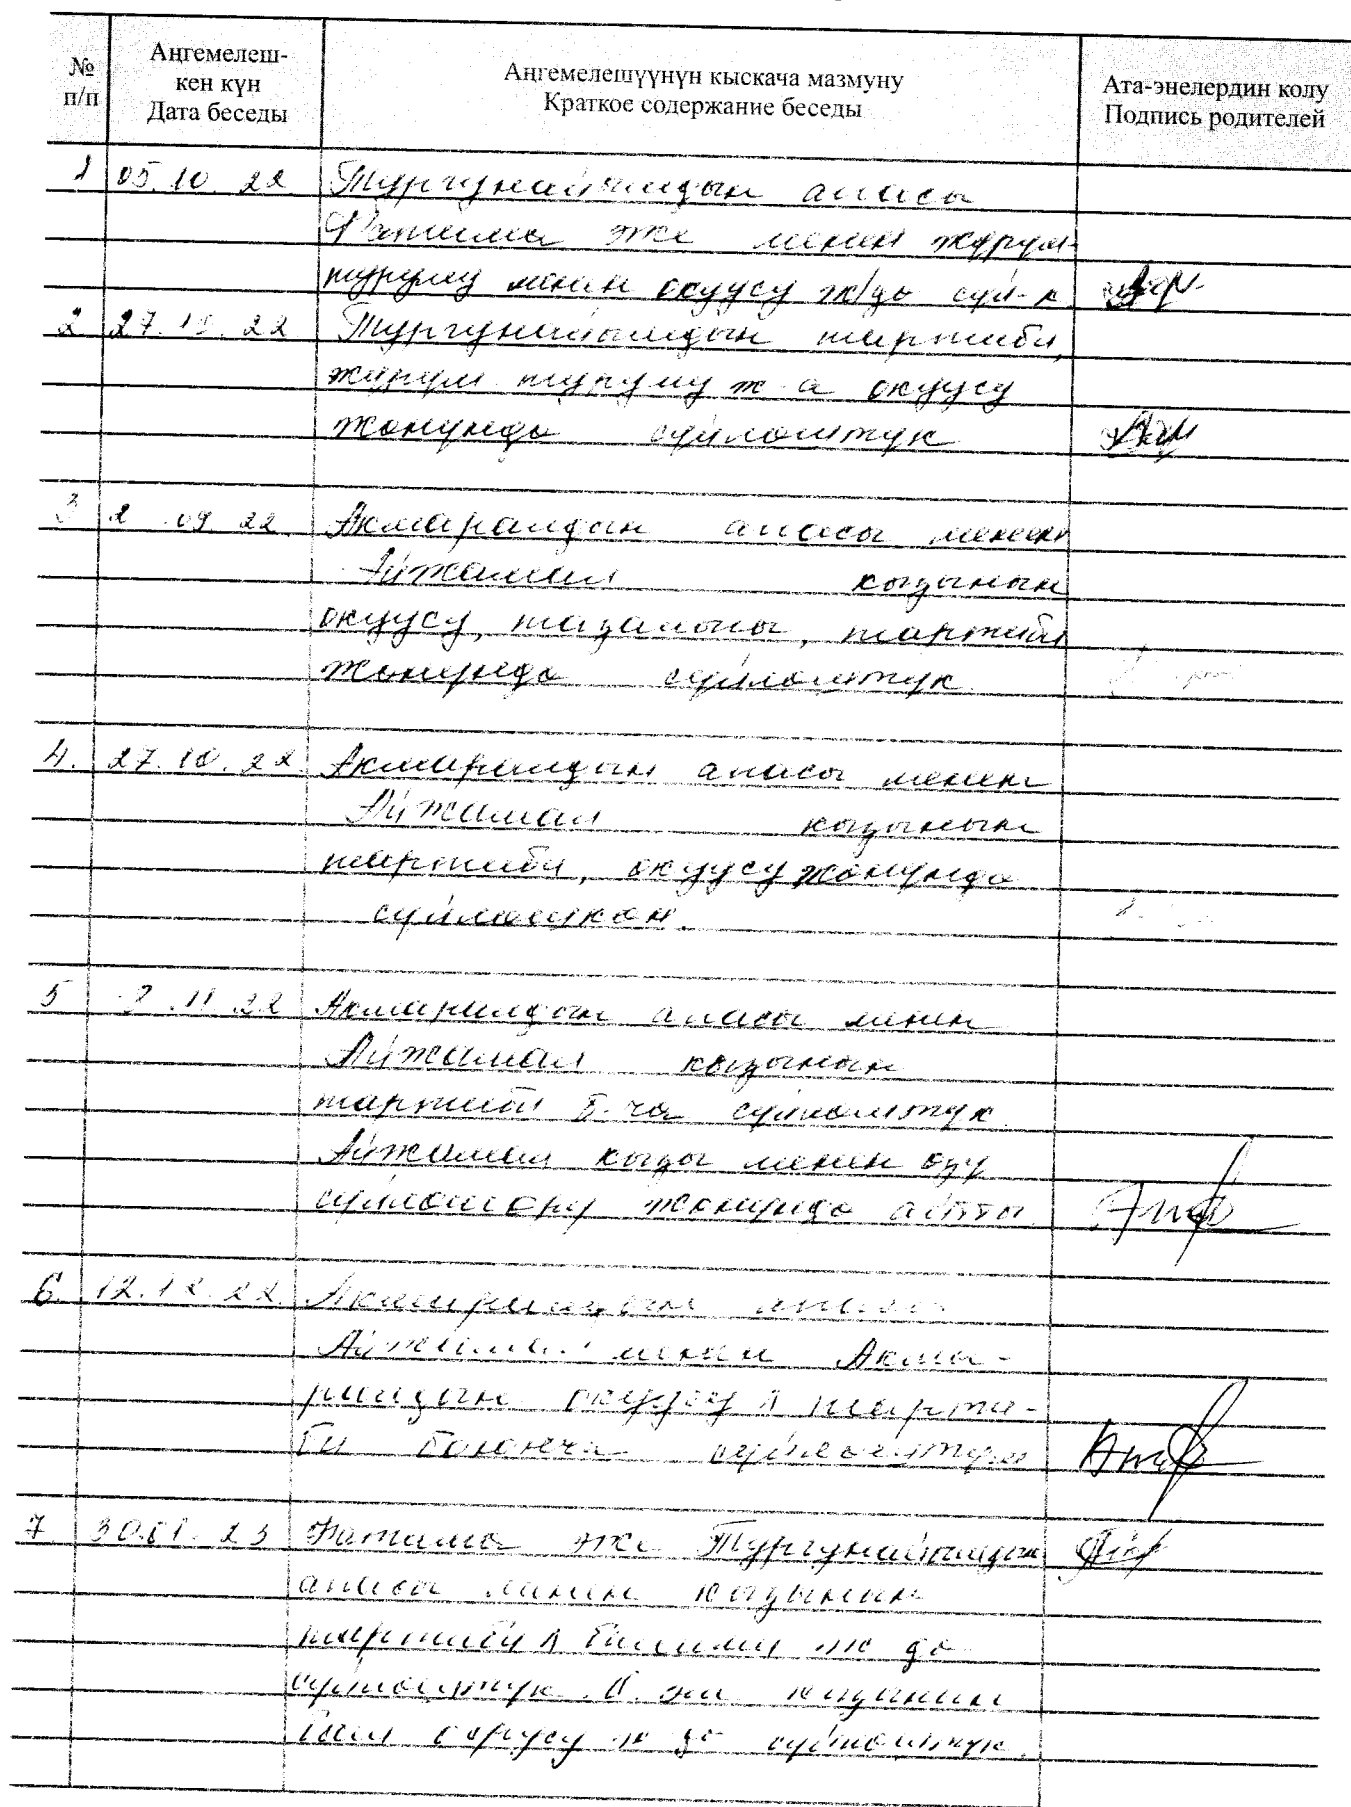 № п/п
Аңгемелеш-
кен күн
Дата беседы
Аңгемелешүүнүн кыскача мазмуну
Краткое содержание беседы
Ата-энелердин колу
Подпись родителей
1 05.10.22 Тургунайымдын апасы
Фатима эже менен жүрүм-
туруму менен окуусу ж/дө сүй-к
2 27.10.22 Тургунайымдын тартиби,
жүрүм туруму ж-а окуусу
жөнүндө сүйлөштүк
3 2 .09.22 Акмаралдын апасы менен
Айжамал кызынын
окуусу, тазалыгы, тартиби
жөнүндө сүйлөштүк.
4. 27.10.22 Акмаралдын апасы менен
Айжамал кызынын
тартиби, окуусу жөнүндө
сүйлөшкөн.
5 .11.22 Акмаралдын апасы менен
Айжамал кызынын
тартиби б-ча сүйлөштүк
Айжамал кызы менен өзү
сүйлөшөрү жөнүндө айтты
6. 12.12.22. Акмаралдын апасы
Айжамал менен Акма-
ралдын окуусу тарти-
би боюнча сүйлөштүм
7 30.01.23 Фатима эже Тургунайымдын
апасы менен кызынын
тартиби билими ж дө
сүйлөштүк. кызынын
ж дө сүйлөштүк.